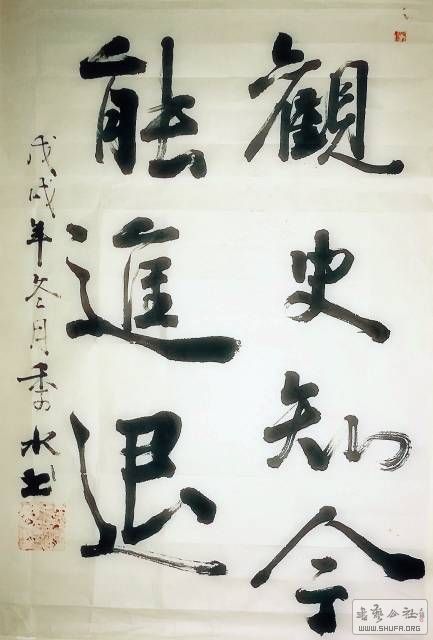 觀史知今
能進退
戊戌年冬月季水书
书艺公社
WWW.SHUFA.ORG